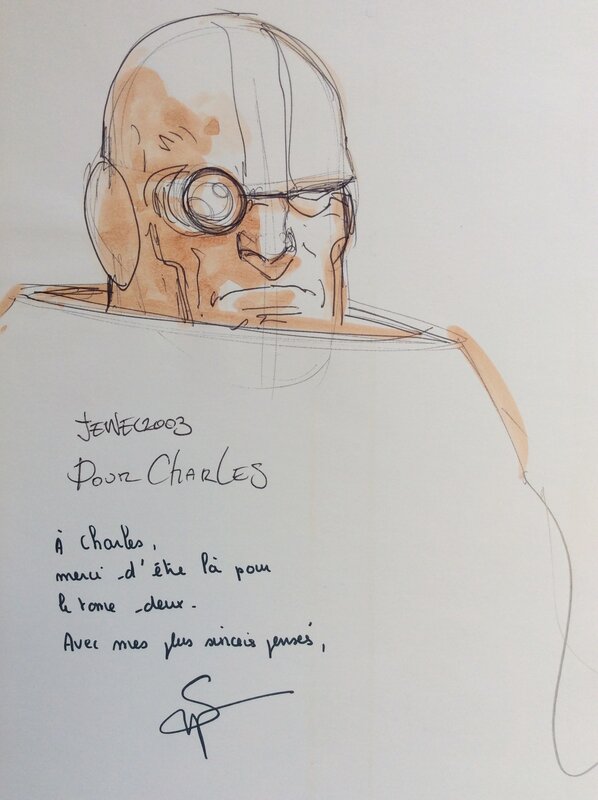 JEWEL2003
POUR CHARLES
À Charles,
merci d'être là pour
le tome deux.
Avec mes plus sincères pensés,